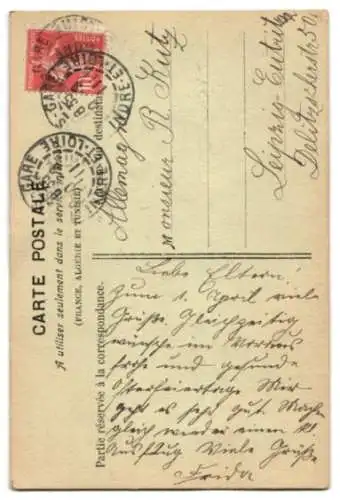 CARTE POSTALE
A utiliser seulement dans le service intérieur
(FRANCE, ALGÉRIE ET TUNISIE)
Partie réservée à la correspondance.
GARE
INDRE-ET-LOIRE
GARE
INDRE-ET-LOIRE
10
Allemagne
Monsieur R. Kutz
Leipzig-Eutritzsch
Delitzscherstr 50
Liebe Eltern!
Zum 1. April viele
Grüße. Gleichzeitig
wünsche im Voraus
frohe und gesunde
Osterfeiertage Mir
geht es sehr gut. Mache
gleich wieder einen kl.
Ausflug Viele Grüße
Frida